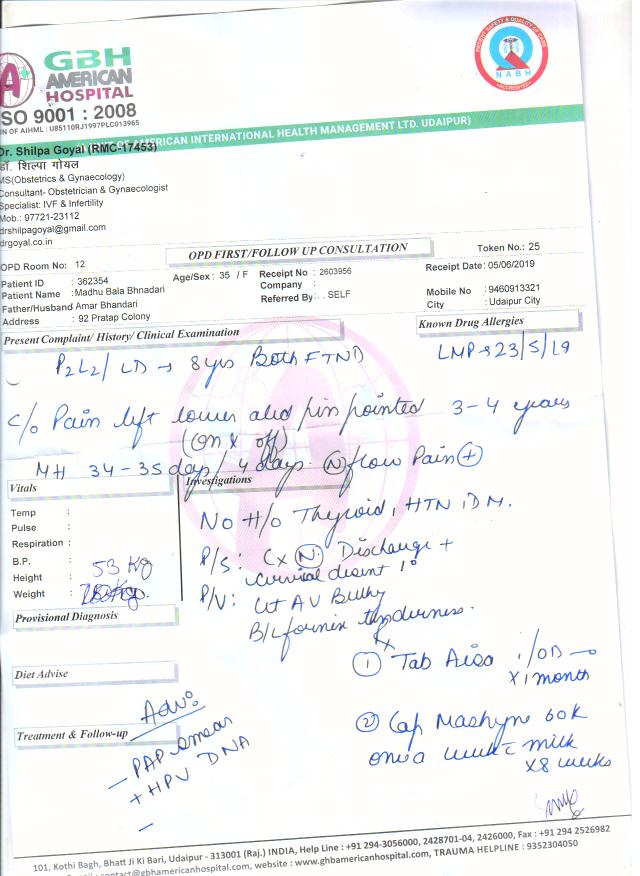 GBH
AMERICAN
HOSPITAL
PATIENT SAFETY & QUALITY OF CARE
NABH
ACCREDITED
ISO 9001 : 2008
IN OF AIHML : U85110RJ1997PLC013965
OF AMERICAN INTERNATIONAL HEALTH MANAGEMENT LTD. UDAIPUR)
Dr. Shilpa Goyal (RMC-17453)
डॉ. शिल्पा गोयल
MS(Obstetrics & Gynaecology)
Consultant- Obstetrician & Gynaecologist
Specialist: IVF & Infertility
Mob.: 97721-23112
drshilpagoyal@gmail.com
drgoyal.co.in
OPD FIRST/FOLLOW UP CONSULTATION
Token No.: 25
OPD Room No: 12
Patient ID : 362354
Age/Sex : 35 / F
Receipt No : 2603956
Receipt Date: 05/06/2019
Patient Name : Madhu Bala Bhnadari
Company :
Mobile No : 9460913321
Father/Husband Amar Bhandari
Referred By: . SELF
City : Udaipur City
Address : 92 Pratap Colony
Present Complaint/ History/ Clinical Examination
Known Drug Allergies
P2L2/ LD → 8 yrs Both FTND
LMP → 23/5/19
c/o Pain left lower abd pin pointed 3-4 years
(on & off)
MH 34-35 days/ 4 days. (N) flow Pain (+)
Vitals
Investigations
Temp :
Pulse :
Respiration :
B.P. :
Height : 53 Kg
Weight :
No H/o Thyroid, HTN, DM.
P/S: Cx (N). Discharge +
cervical descent 1°
P/V: Ut AV Bulky
B/L fornix tenderness.
Provisional Diagnosis
Rx
(1) Tab Aiso 1/OD
x 1 month
Diet Advise
(2) Cap Mashyne 60K
once a week c milk
x8 weeks
Treatment & Follow-up
Adv:
- PAP smear
+ HPV DNA
-
101, Kothi Bagh, Bhatt Ji Ki Bari, Udaipur - 313001 (Raj.) INDIA, Help Line : +91 294-3056000, 2428701-04, 2426000, Fax : +91 294 2526982
contact@gbhamericanhospital.com, website : www.gbhamericanhospital.com, TRAUMA HELPLINE : 9352304050